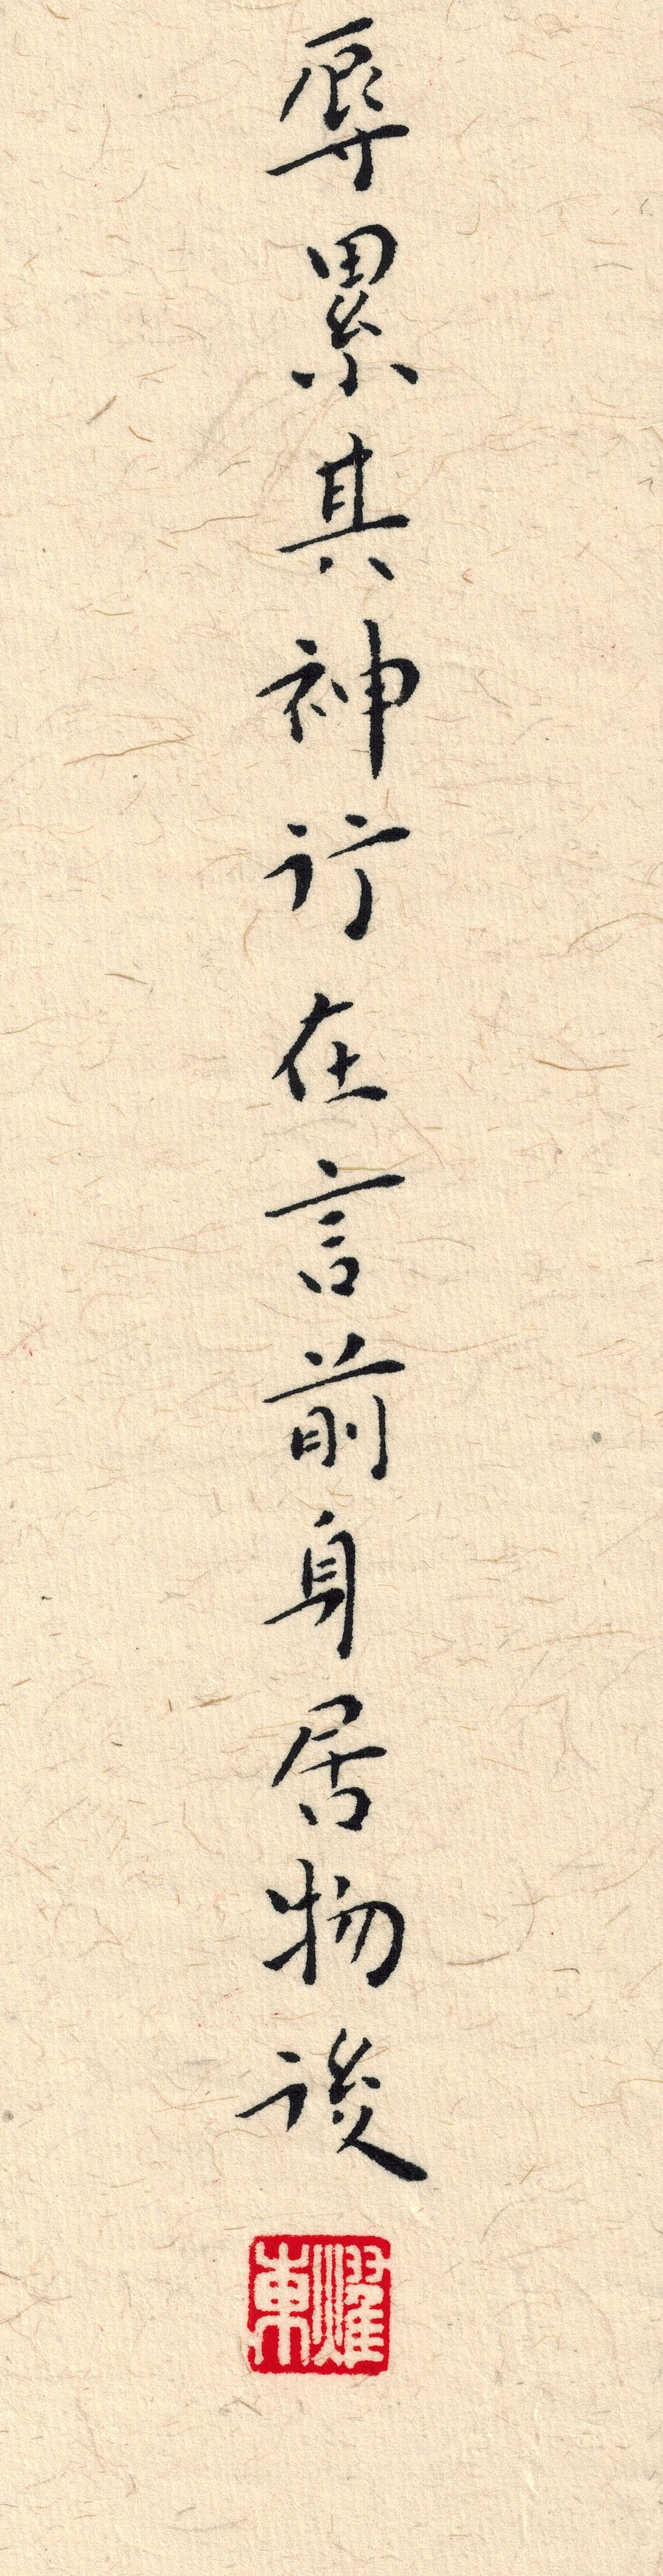 辱累其神行在言前身居物後
耀東